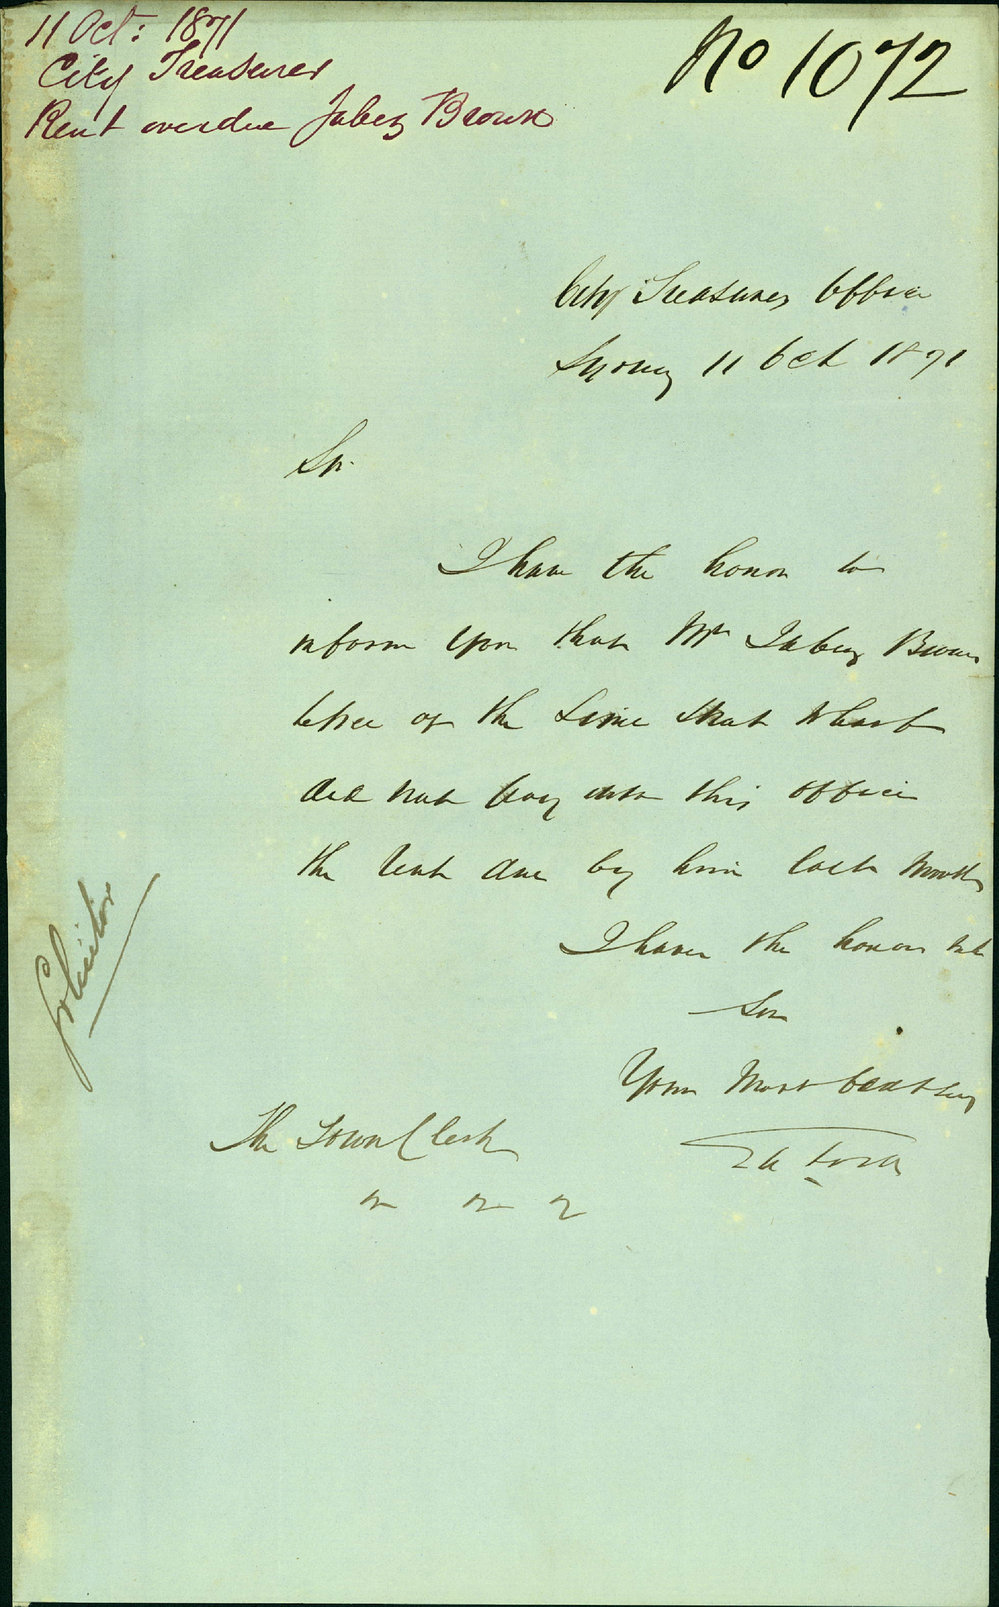 11 Oct: 1871
City Treasurer
Rent overdue Jabez Brown
No 1072
City Treasurers Office
Sydney 11 Oct 1871
Sir
I have the honor to
inform you that Mr Jabez Brown
lessee of the Lime Street Wharf
did not pay into this office
the rent due by him last month
I have the honor to be
Sir
Your Most Obedt Serv
The Town Clerk
Solicitor